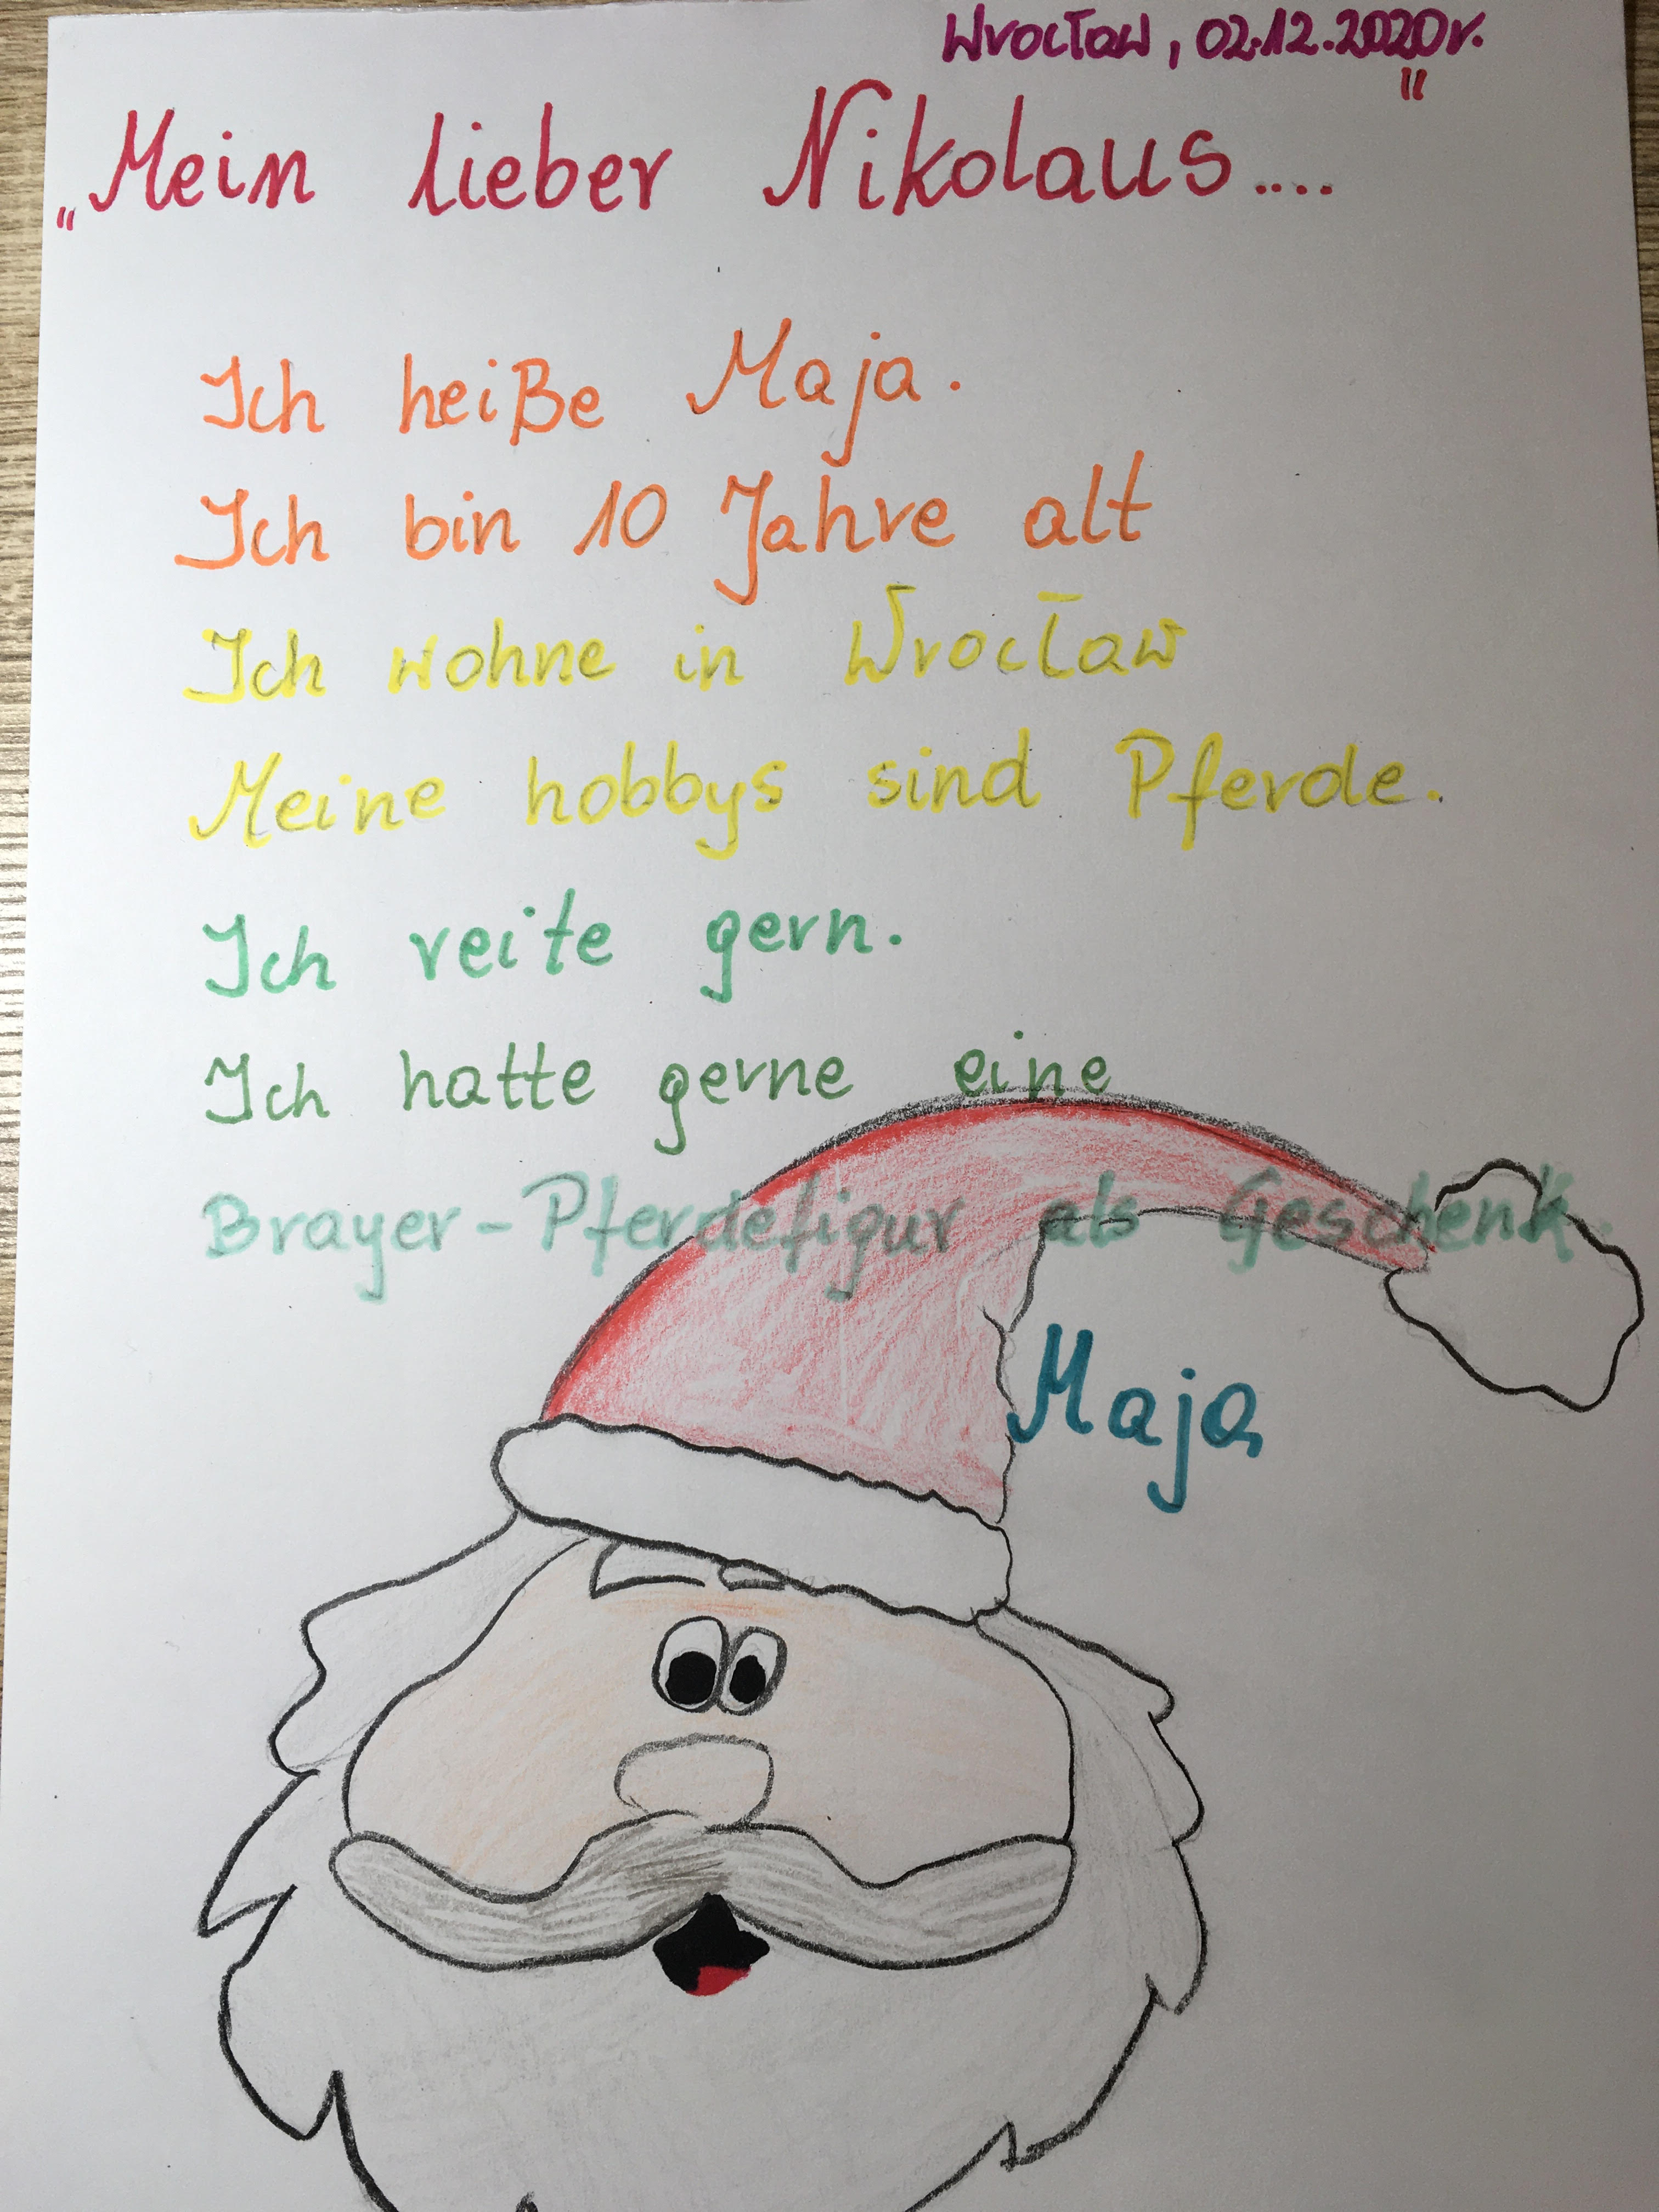 Wrocław, 02.12.2020r.
„Mein lieber Nikolaus...."
Ich heiße Maja.
Ich bin 10 Jahre alt
Ich wohne in Wrocław
Meine hobbys sind Pferde.
Ich reite gern.
Ich hatte gerne eine
Brayer-Pferdefigur als Geschenk.
Maja